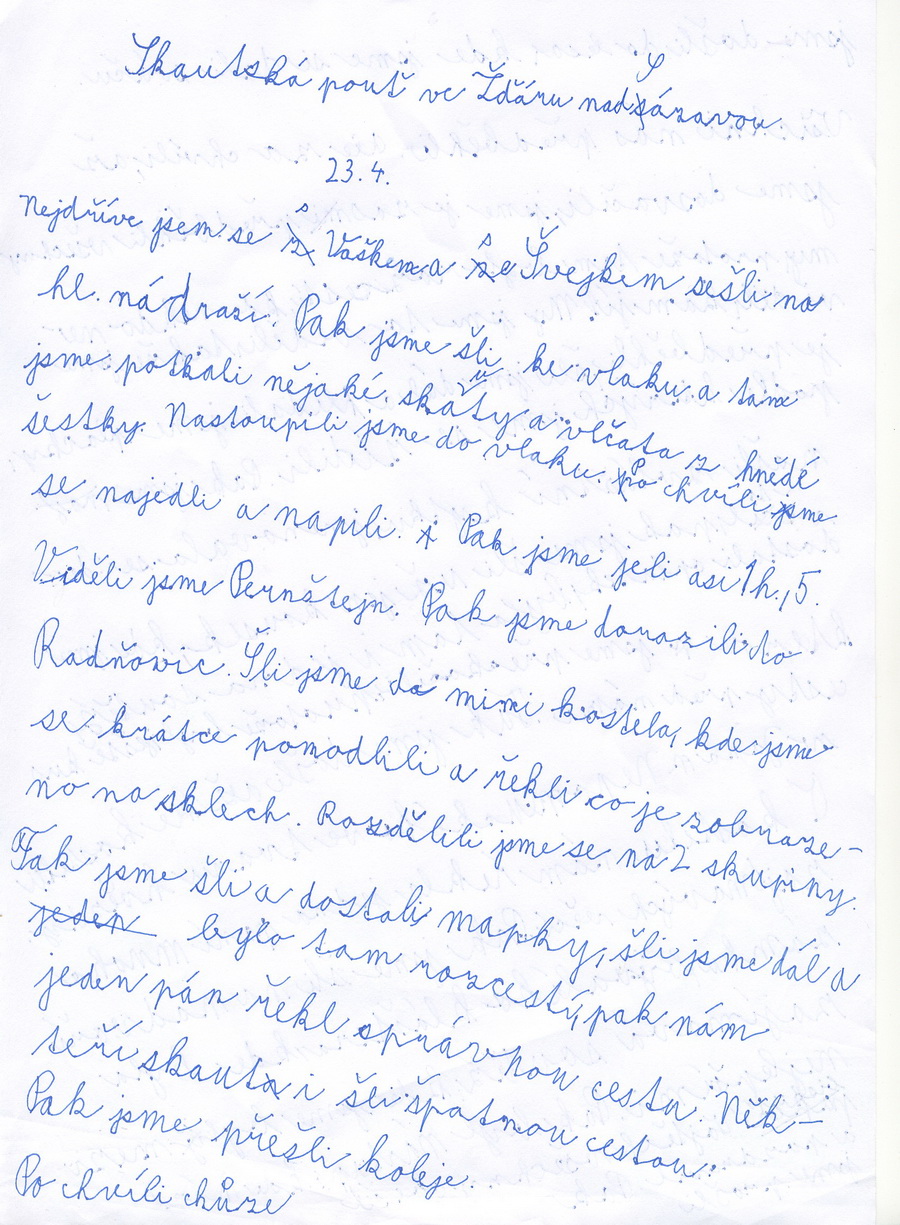 Skautská pouť ve Žďáru nad Sázavou
23.4.
Nejdříve jsem se s Vaškem a se Švejkem sešli na
hl. nádraží. Pak jsme šli ke vlaku a tam
jsme potkali nějaké skauty a vlčata z hnědé
šestky. Nastoupili jsme do vlaku. Po chvíli jsme
se najedli a napili. Pak jsme jeli asi 1h.,5.
Viděli jsme Pernštejn. Pak jsme dorazili do
Radňovic. Šli jsme do mimi kostela, kde jsme
se krátce pomodlili a řekli co je zobraze-
no na sklech. Rozdělili jsme se na 2 skupiny.
Tak jsme šli a dostali mapky, šli jsme dál a
jeden bylo tam rozcestí, pak nám
jeden pán řekl správnou cestu. Něk-
teří skauti šli špatnou cestou.
Pak jsme přešli koleje.
Po chvíli chůze